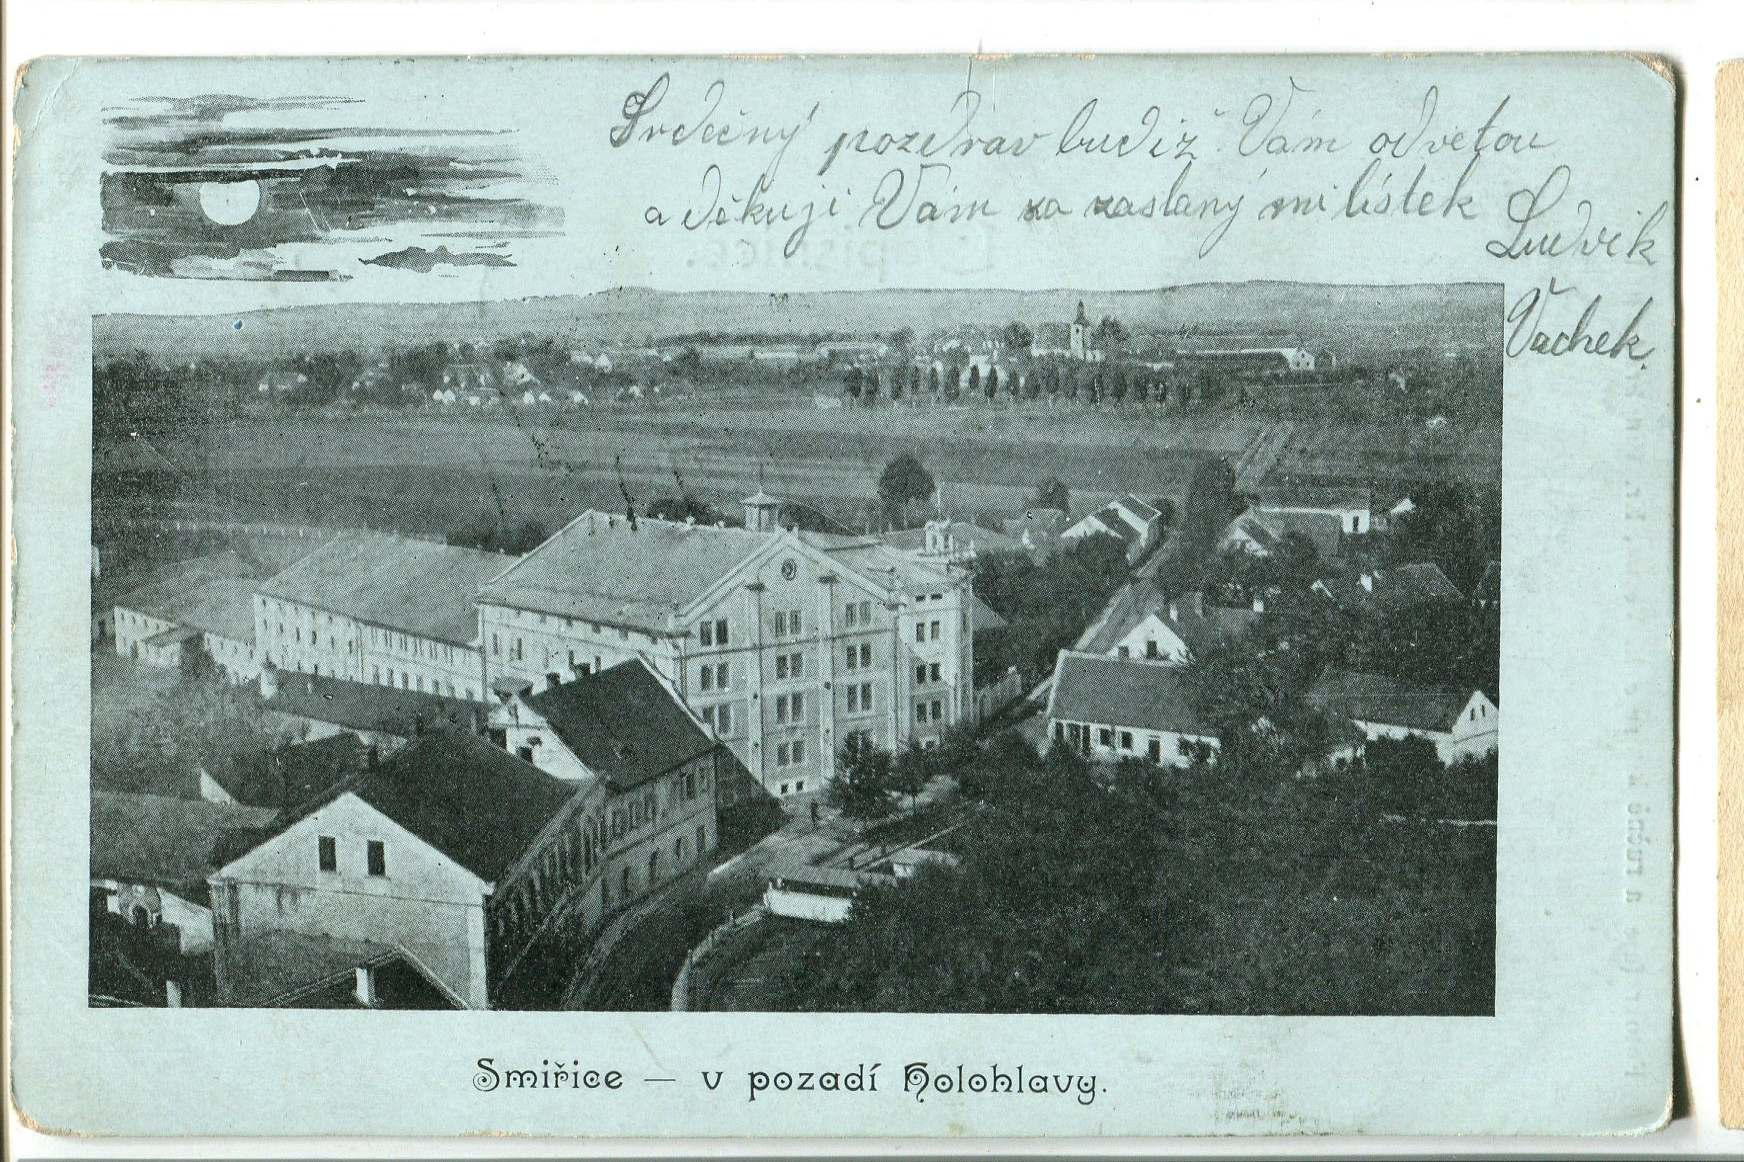 Srdečný pozdrav budiž Vám odvetou
a děkuji Vám za zaslaný mi lístek
Ludvik
Vachek.
Smiřice — v pozadí Holohlavy.